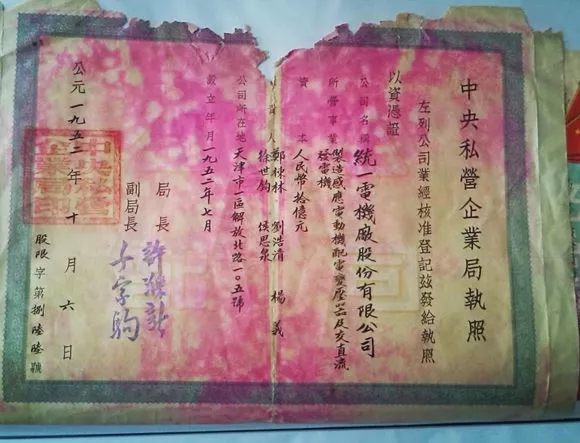 中央私營企業局執照
左列公司業經核准登記茲發給執照
以資憑證
公司名稱 統一電機廠股份有限公司
所營事業 製造感應電動機配電變壓器及交直流
發電機
資本 人民幣拾億元
人 鄭棟林 劉浩清 楊義
徐世鈞 侯思泉
公司所在地 天津市一區解放北路一〇五號
設立年月 一九五二年七月
局長 許滌新
副局長 千家駒
公元一九五二年十月六日
股限字第捌陸陸號
中央私營企業局印